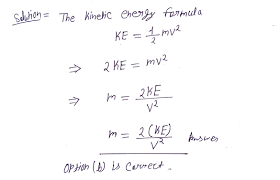 Solution = The kinetic energy formula
KE = 1/2 mv²
⇒ 2KE = mv²
⇒ m = 2KE/V²
m = 2(KE)/V² Answer
Option (b) is correct.